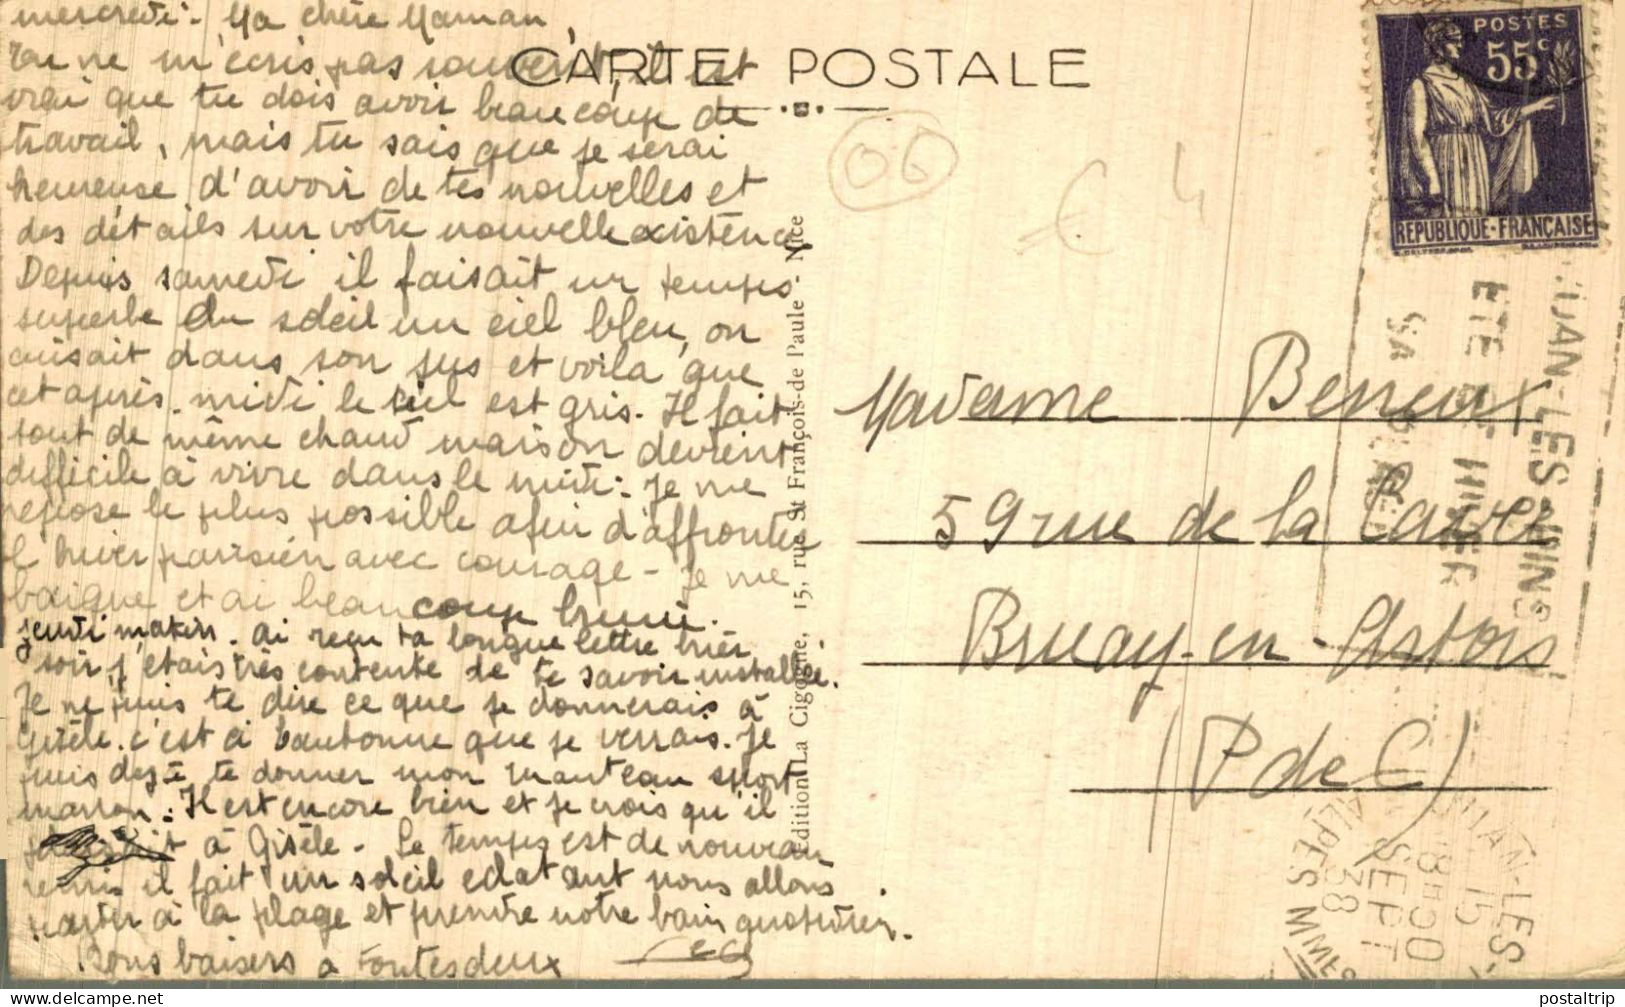 mercredi. Ma chère Maman,
Tu ne m'écris pas souvent, il est
vrai que tu dois avoir beaucoup de
travail, mais tu sais que je serai
heureuse d'avoir de tes nouvelles et
des détails sur votre nouvelle existence
Depuis samedi il faisait un temps
superbe du soleil un ciel bleu, on
cuisait dans son jus et voilà que
cet après-midi le ciel est gris. Il fait
tout de même chaud maison devient
difficile à vivre dans le midi. Je me
repose le plus possible afin d'affronter
l'hiver parisien avec courage - Je me
baigne et ai beaucoup bruni.
jeudi matin. ai reçu ta longue lettre hier
soir, j'étais très contente de te savoir installée.
Je ne puis te dire ce que je donnerais à
Gisèle. c'est à l'automne que je verrais. Je
puis te donner mon manteau sport
marron. Il est encore bien et je crois qu'il
à Gisèle - Le temps est de nouveau
remis il fait un soleil éclatant nous allons
partir à la plage et prendre notre bain quotidien.
Bons baisers à toutes deux
CARTE POSTALE
Edition La Cigogne, 15, rue St François-de Paule - Nice
06
€ 4
POSTES
55c
REPUBLIQUE-FRANÇAISE
JUAN-LES-PINS
ETE ET HIVER
SA
Madame Beneux
59 rue de la
Bruay-en-Artois
(P de C)
JUAN-LES-
18H30
15
SEPT
38
ALPES MMES
postaltrip
www.delcampe.net